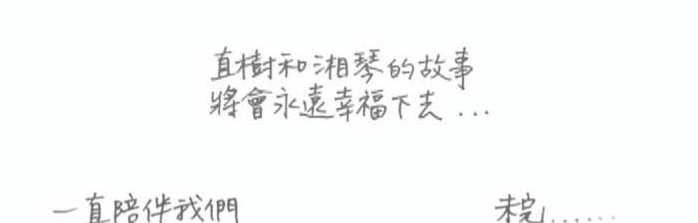 直樹和湘琴的故事
將會永遠幸福下去...
一直陪伴我們 未完......